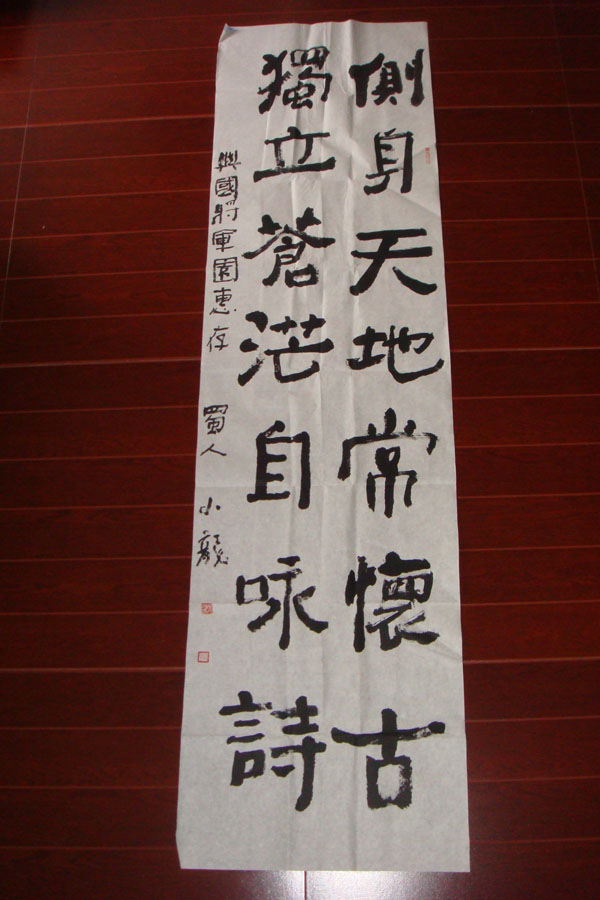 側身天地常懷古
獨立蒼茫自咏詩
興國將軍園惠存
蜀人 小龍